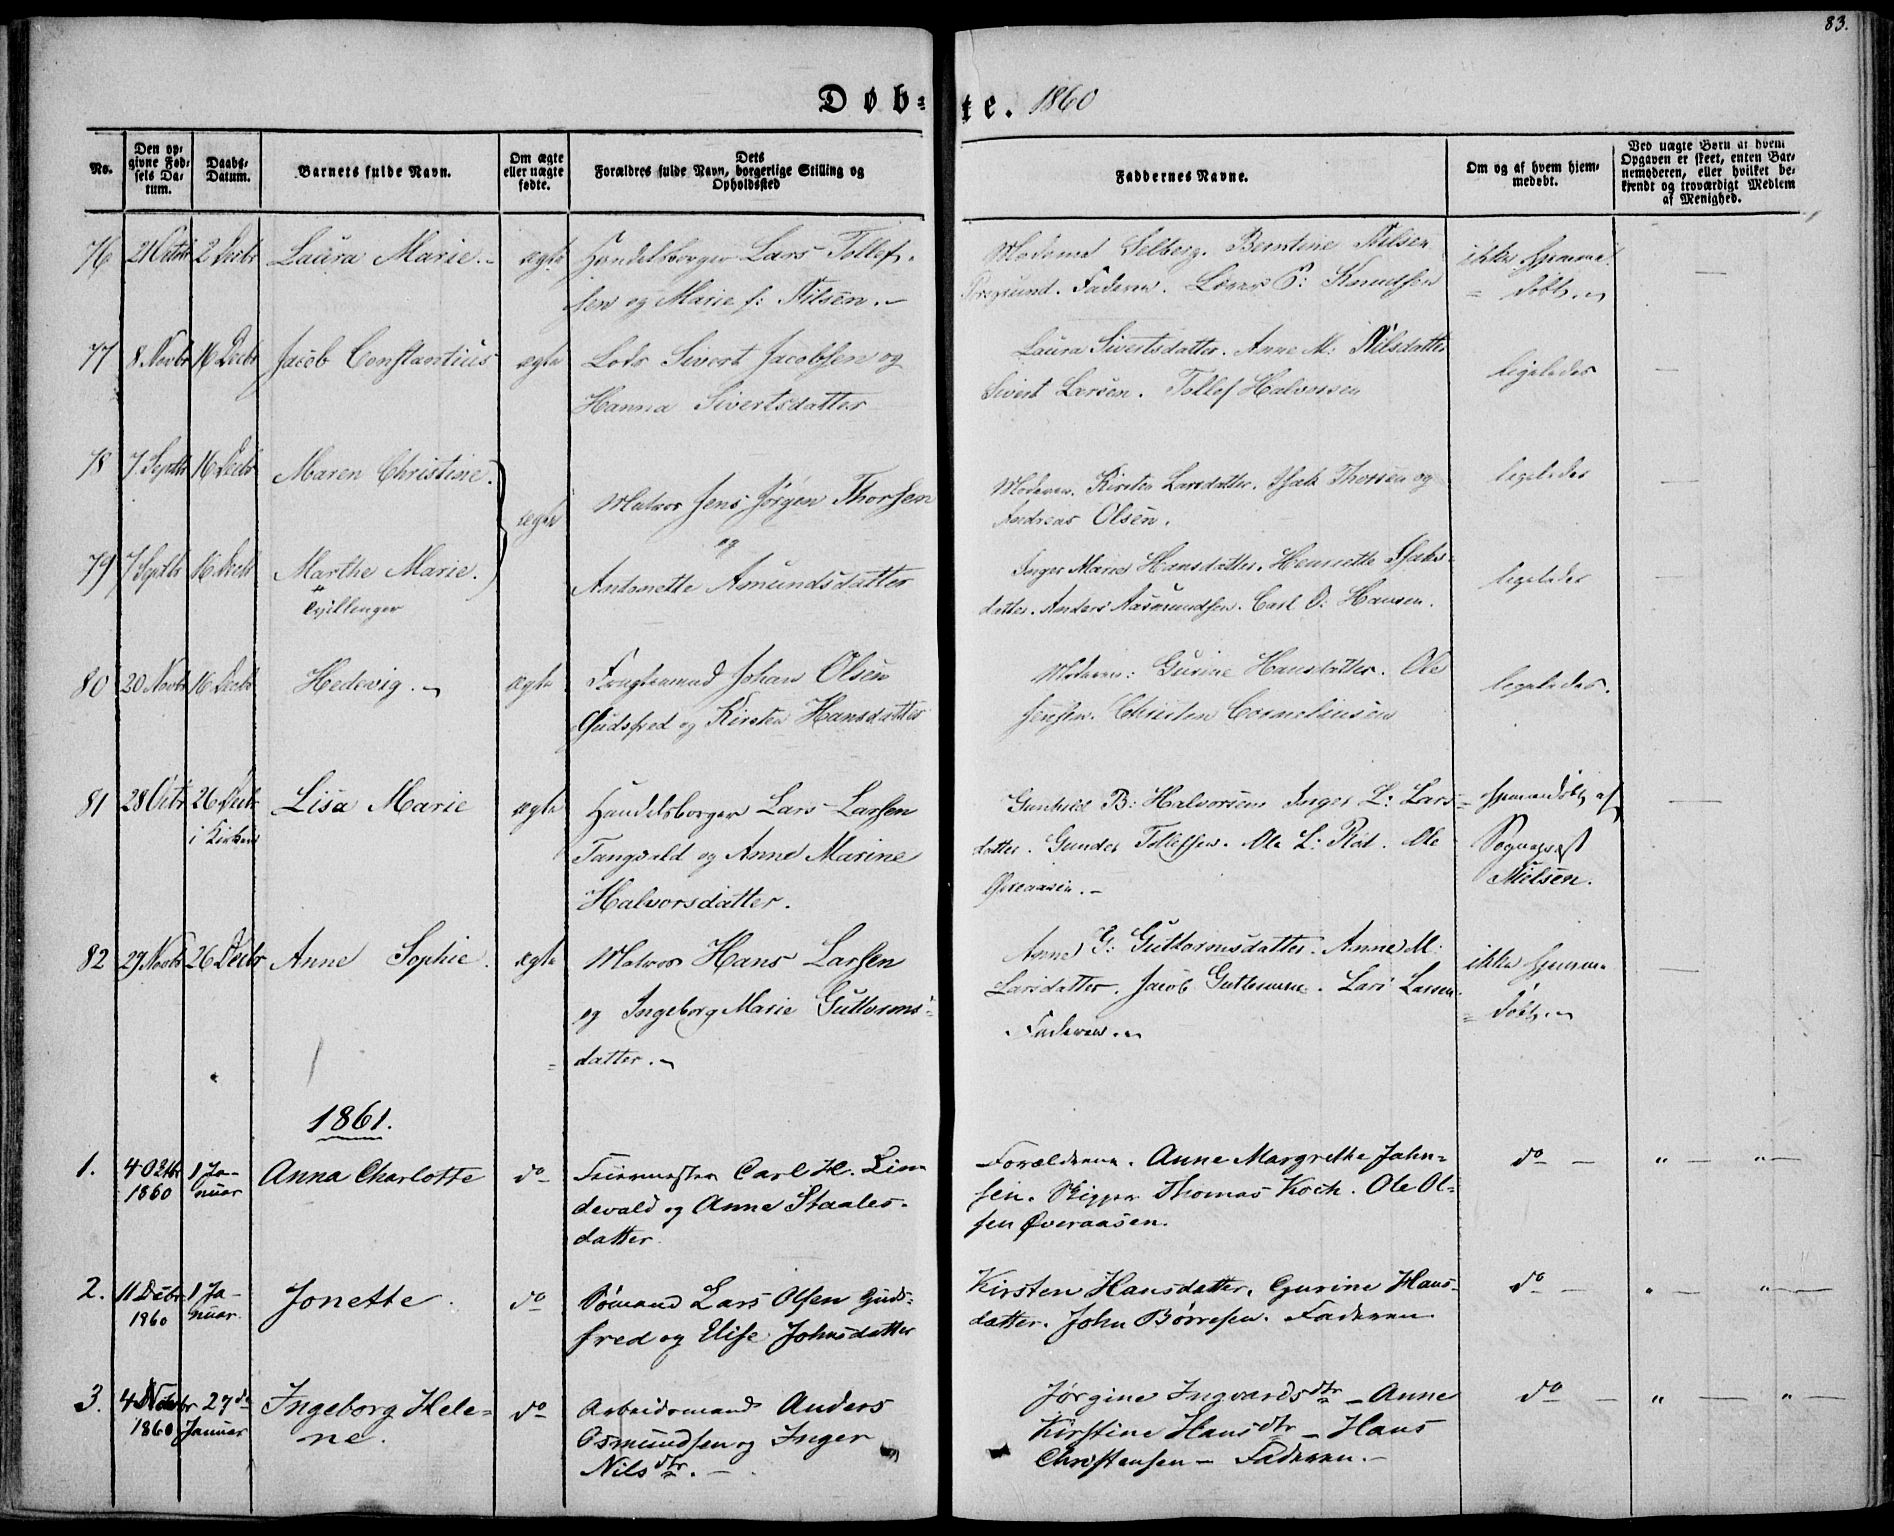 83.
Døb-te. 1860
No.
Den op-
givne Fød-
sels Da-
tum.
Daabs-
Datum.
Barnets fulde Navn.
Om ægte
eller uægte
fødte.
Dets
Forældres fulde Navn, borgerlige Stilling og
Opholdssted
Faddernes Navne.
Om og af hvem hjem-
medøbt.
Ved uægte Børn at hvem
Opgaven er skeet, enten Bar-
nemoderen, eller hvilket be-
kjendt og troværdigt Medlem
af Menighed.
76 21 Octbr 2 Decbr Laura Marie. ægte Handelsborger Lars Tollef-
sen og Marie f: Nilsen.
Madame Selberg. Berntine Nilsen
Faderen. P: Knudsen
ikke hjemme-
døbt.
77 8 Novbr 16 Decbr Jacob Constantius ægte Lods Sivert Jacobsen og
Hanna Sivertsdatter
Laura Sivertsdatter. Anne M: Nilsdatter
Sivert Larsen. Tollef Halvorsen
ligeledes
78 7 Septbr 16 Decbr Maren Christine.
79 7 Septbr 16 Decbr Marthe Marie.
Tvillinger
ægte Matros Jens Jørgen Thorsen
og
Antonette Amundsdatter
Moderen. Kirsten Larsdatter. Isak Thorsen og
Andreas Olsen.
ligeledes
Inger Marie Hansdatter. Henriette Isaks-
datter. Anders Aasmundsen. Carl O: Hansen.
ligeledes
80 20 Novbr 16 Decbr Hedevig. ægte Johan Olsen
Gudsfred og Kirsten Hansdatter
Moderen: Gurine Hansdatter. Ole
Jensen. Christen Corneliussen
ligeledes.
81 28 Octbr 26 Decbr
i Kirken
Lisa Marie ægte Handelsborger Lars Larsen
Tangvald og Anne Marine
Halvorsdatter.
Gunhild B: Halvorsen Inger L: Lars-
datter. Gunder Tollefsen. Ole L: Röd. Ole
Øveraasen.
Hjemmedøbt af
Sogneprest
Nielsen.
82 27 Novbr 26 Decbr Anne Sophie. ægte Matros Hans Larsen
og Ingeborg Marie Guttorms-
datter.
Anne G: Guttormsdatter. Anne M:
Larsdatter. Jacob Guttormsen. Lars Larsen.
Faderen.
ikke hjemme-
døbt.
1861.
1. 4 Octbr
1860
1 Ja-
nuar
Anna Charlotte do Feiermester Carl H. Lin-
devald og Anne Staales-
datter
Forældrene. Anne Margrethe John-
sen. Skipper Thomas Koch. Ole Ol-
sen Øveraasen.
do
2. 11 Decbr
1860
1 Ja-
nuar.
Jonette. do Sømand Lars Olsen Guds-
fred og Elise Johnsdatter
Kirsten Hansdatter. Gurine Hans-
datter. John Børresen. Faderen
do
3. 4 Novbr
1860
27de
Januar
Ingeborg Hele-
ne.
do Arbeidsmand Anders
Osmundsen og Inger
Nilsdtr.
Jørgine Ingvardsdtr – Anne
Kirstine Hansdtr – Hans
Christensen – Faderen.
do